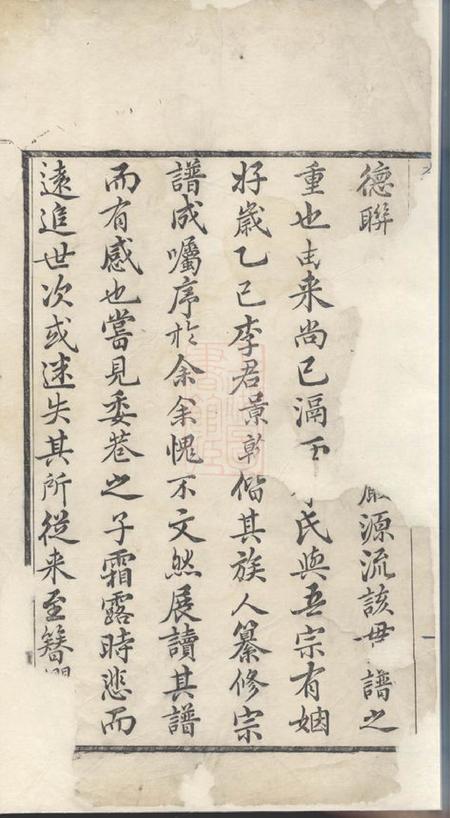 德聯源流該毋譜之
重也由来尚已滆氏與吾宗有姻
好歲乙巳李君景偕其族人纂修宗
譜成囑序於余余愧不文然展讀其譜
而有感也嘗見委巷之子霜露時悲而
遠追世次或迷失其所從来至簪